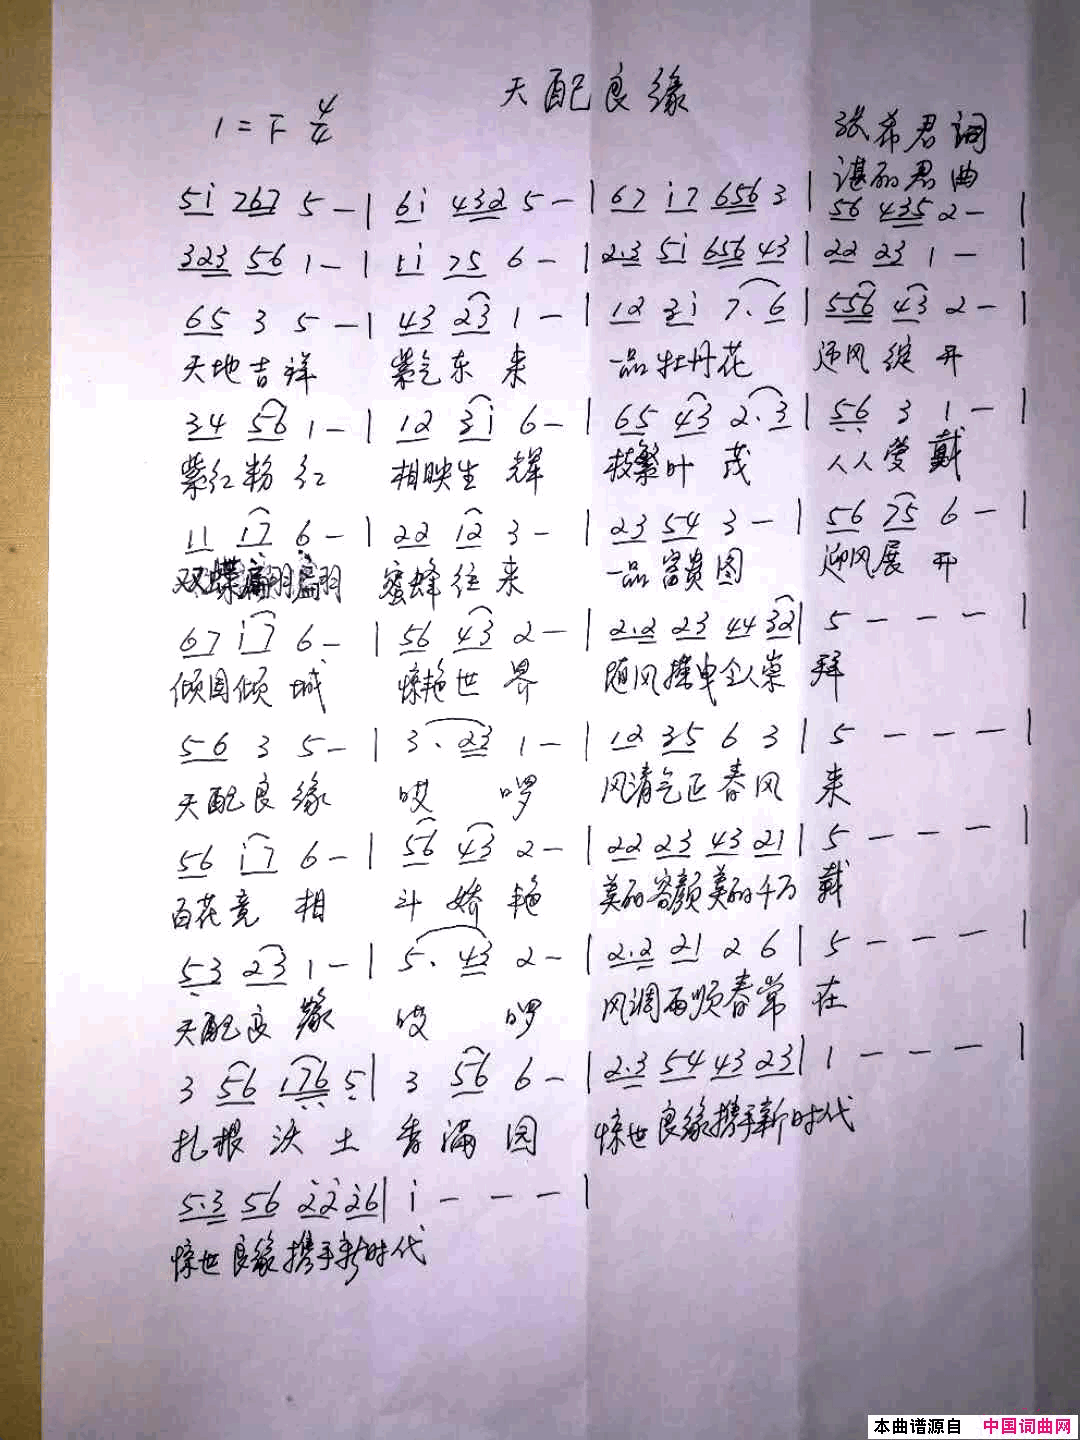 天配良缘
1=F 4/4
张希君词
谌丽君曲
5i 767 5 - | 6i 432 5 - | 67 i7 656 3 | 56 435 2 - |
323 56 1 - | 11 75 6 - | 2.3 5i 656 43 | 22 23 1 - |
65 3 5 - | 43 23 1 - | 12 3i 7.6 | 556 43 2 - |
天地吉祥 紫气东来 一品牡丹花 迎风绽开
34 56 1 - | 12 3i 6 - | 65 43 2.3 | 56 3 1 - |
紫红粉红 相映生辉 枝繁叶茂 人人爱戴
11 17 6 - | 22 12 3 - | 23 54 3 - | 56 75 6 - |
双蝶翩翩 蜜蜂往来 一品富贵图 迎风展开
67 i7 6 - | 56 43 2 - | 2.2 23 44 32 | 5 - - - |
倾国倾城 惊艳世界 随风摇曳令人崇拜
56 3 5 - | 3.23 1 - | 12 35 6 3 | 5 - - - |
天配良缘 哎啰 风清气正春风来
56 i7 6 - | 56 43 2 - | 22 23 43 21 | 5 - - - |
百花竞相 斗娇艳 美丽容颜美丽千万载
53 23 1 - | 5.43 2 - | 2.2 21 2 6 | 5 - - - |
天配良缘 哎啰 风调雨顺春常在
3 56 176 5 | 3 56 6 - | 2.3 54 43 23 | 1 - - - |
扎根沃土香满园 惊世良缘携手新时代
5.3 56 22 26 | i - - - |
惊世良缘携手新时代
本曲谱源自 中国词曲网